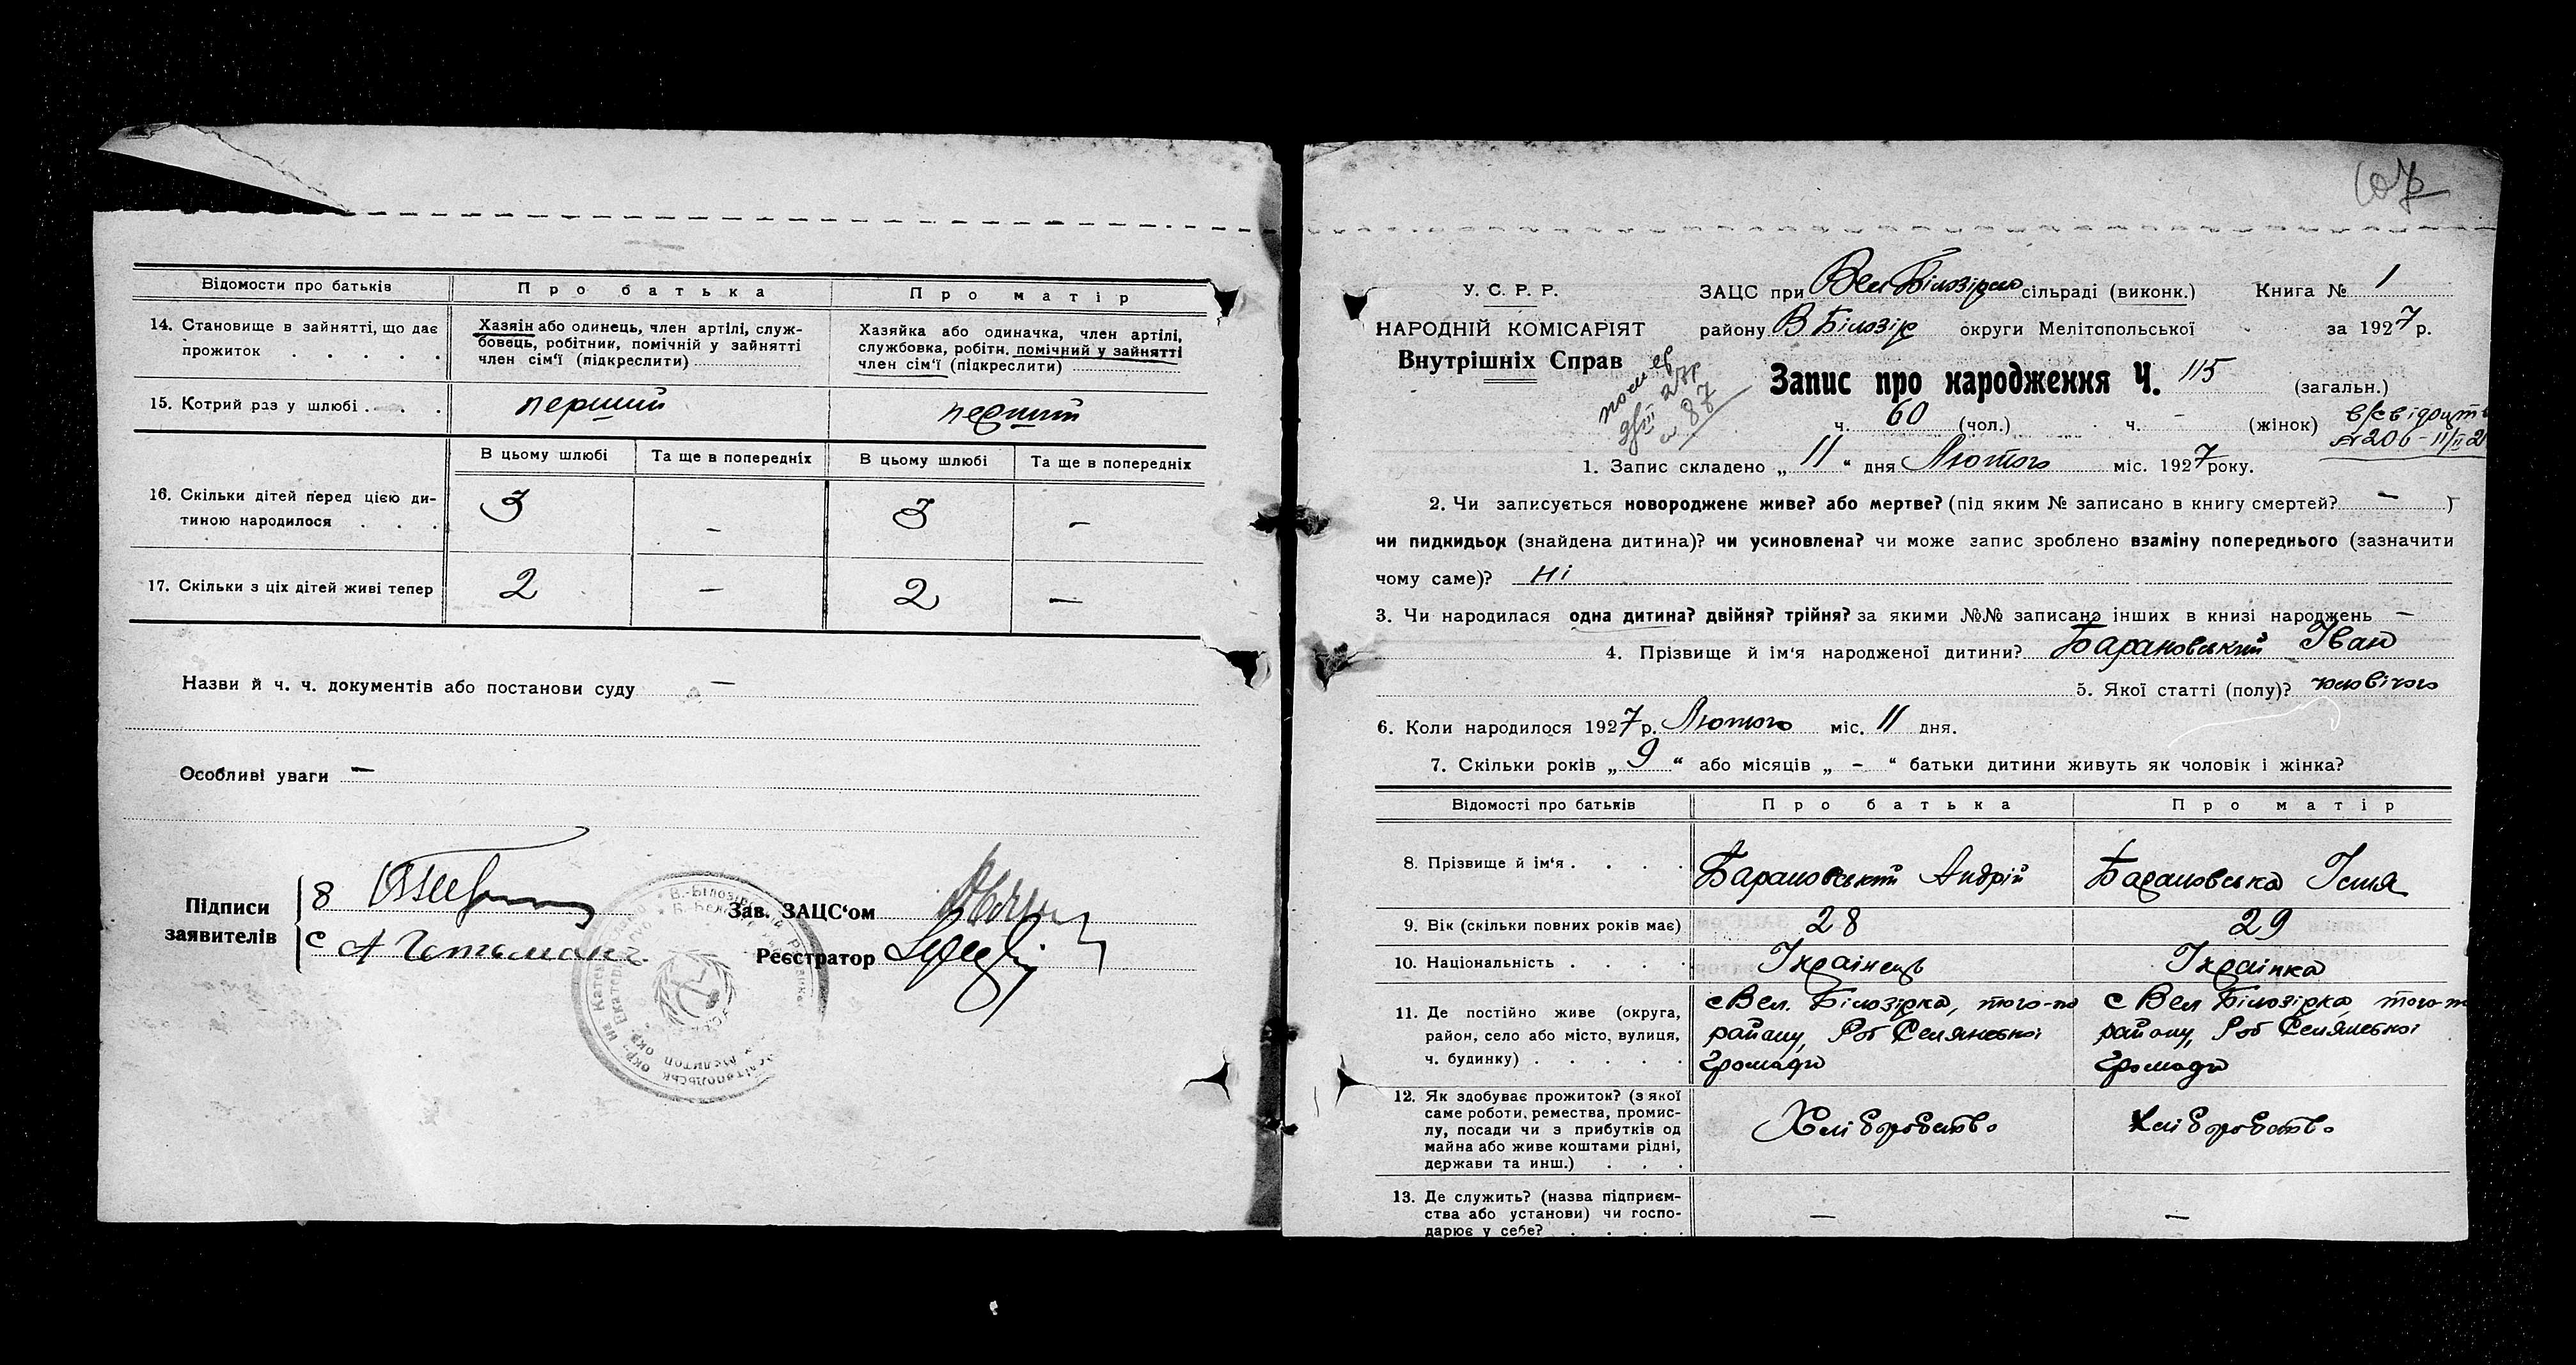 Відомости про батьків
Про батька
Про матір
14. Становище в зайнятті, що дає прожиток . . . . .
Хазяїн або одинець, член артілі, служ-
бовець, робітник, помічній у зайнятті
член сім'ї (підкреслити)
Хазяйка або одиначка, член артілі,
службовка, робітн. помічний у зайнятті
член сім'ї (підкреслити)
15. Котрий раз у шлюбі . . . .
перший
перший
В цьому шлюбі
Та ще в попередніх
В цьому шлюбі
Та ще в попередніх
16. Скільки дітей перед цією ди-
тиною народилося . . .
3
–
3
–
17. Скільки з ціх дітей живі тепер
2
–
2
–
Назви й ч. ч. документів або постанови суду –
Особливі уваги –
Підписи
заявителів
8
с А Гетьман
Зав. ЗАЦС'ом
Реєстратор
У. С. Р. Р.
НАРОДНІЙ КОМІСАРІЯТ
Внутрішніх Справ
ЗАЦС при Вел Білозірск сільраді (виконк.) Книга № 1
району В Білозір округи Мелітопольської за 1927 р.
Запис про народження Ч. 115 (загальн.)
ч. 60 (чол.) ч. – (жінок)
87
1. Запис складено „ 11 “ дня Лютого міс. 1927 року.
2. Чи записується новороджене живе? або мертве? (під яким № записано в книгу смертей? – )
чи пидкидьок (знайдена дитина)? чи усиновлена? чи може запис зроблено взаміну попереднього (зазначити
чому саме)? ні
3. Чи народилася одна дитина? двійня? трійня? за якими №№ записано інших в книзі народжень –
4. Прізвище й ім'я народженої дитини? Барановський Іван
5. Якої статті (полу)? чоловічого
6. Коли народилося 1927 р. Лютого міс. 11 дня.
7. Скільки років „ 9 “ або місяців „ – “ батьки дитини живуть як чоловік і жінка?
Відомості про батьків
Про батька
Про матір
8. Прізвище й ім'я . . . .
Барановський Андрій
Барановська
9. Вік (скільки повних років має)
28
29
10. Національність . . . .
Українець
Українка
11. Де постійно живе (округа,
район, село або місто, вулиця,
ч. будинку) . . . . .
с Вел. Білозірка, того-ж
району, Роб Селянської
Громади
с Вел Білозірка, того-ж
району, Роб Селянської
Громади
12. Як здобуває прожиток? (з якої
саме роботи, ремества, промис-
лу, посади чи з прибутків од
майна або живе коштами рідні,
держави та инш.) . . .
Хліборобство
Хліборобство
13. Де служить? (назва підприєм-
ства або установи) чи госпо-
дарює у себе? . . . .
–
–